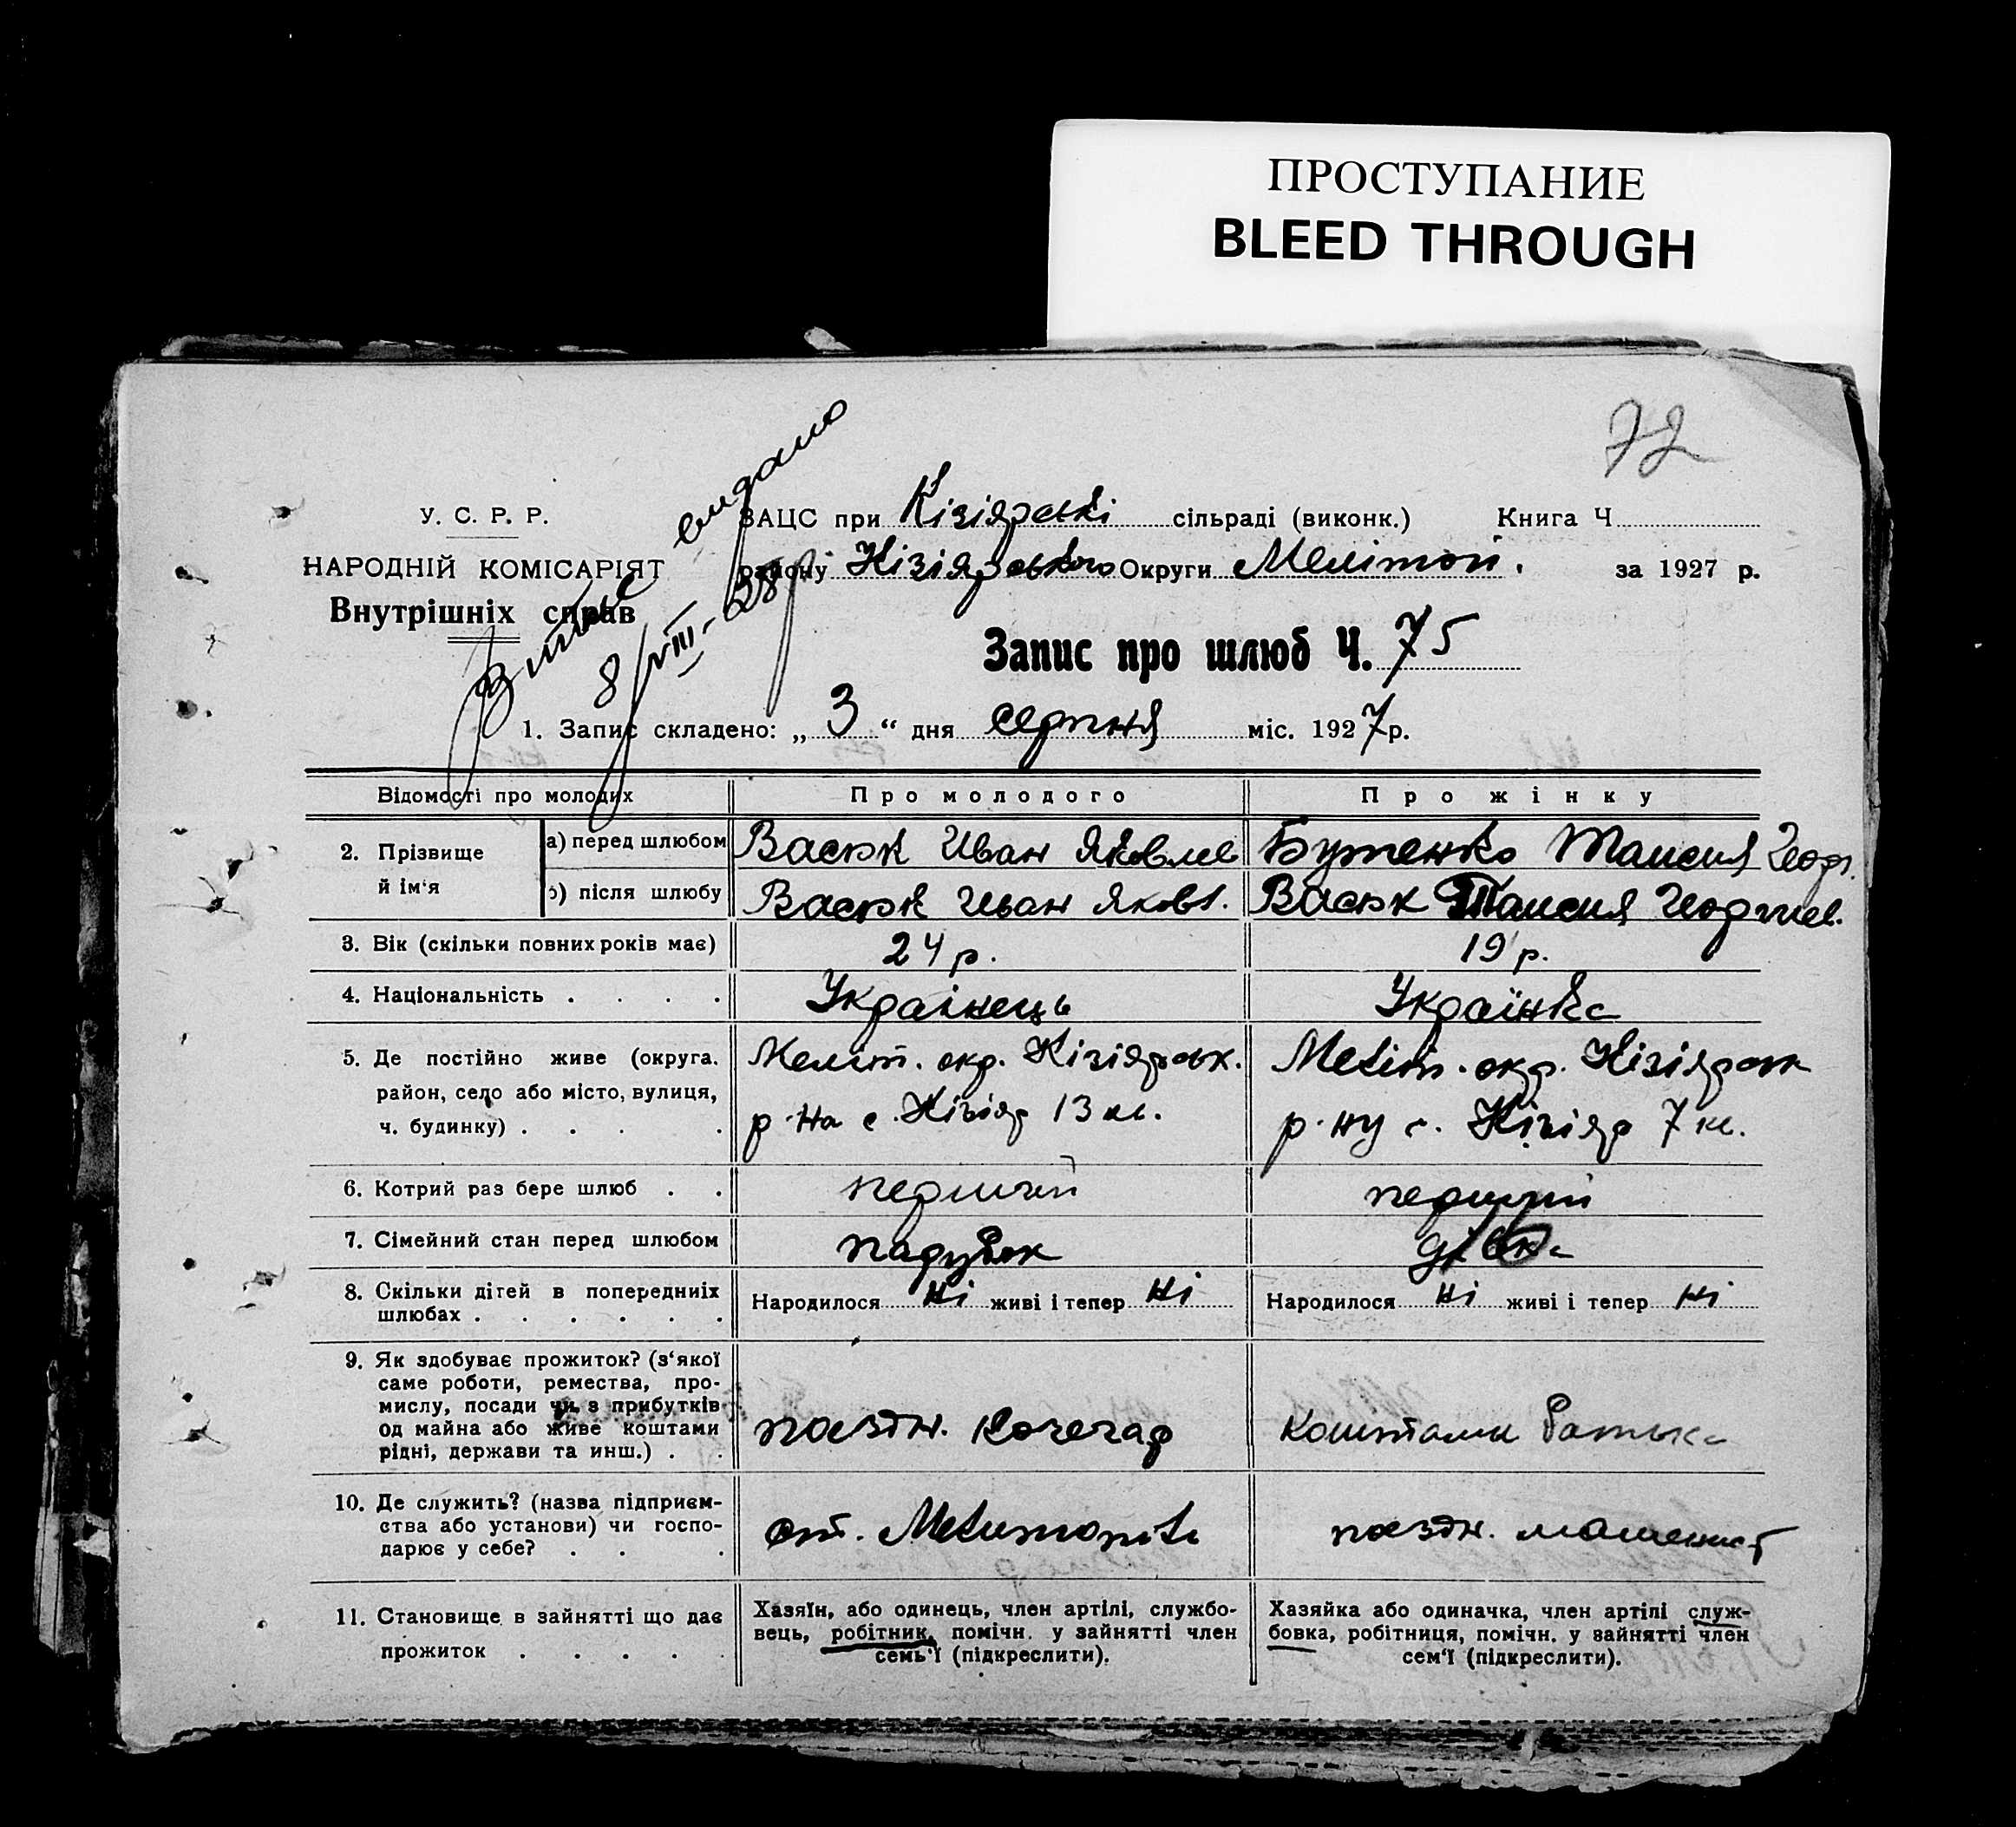 ПРОСТУПАНИЕ
BLEED THROUGH
72
У. С. Р. Р.
НАРОДНІЙ КОМІСАРІЯТ
Внутрішніх справ
Витяг видано
8/VIII-28р
ЗАЦС при Кізіярські сільраді (виконк.) Книга Ч
району Кізіярського Округи Мелітоп. за 1927 р.
Запис про шлюб Ч. 75
1. Запис складено: „ 3 “ дня серпня міс. 1927 р.
Відомості про молодих Про молодого Про жінку
2. Прізвище й ім‘я
а) перед шлюбом Васюк Иван Яковле Бутенко Таисия Георг.
б) після шлюбу Васюк Иван Яковл. Васюк Таисия Георгиев.
3. Вік (скільки повних років має) 24 р. 19 р.
4. Національність . . . . Українець Українка
5. Де постійно живе (округа. Меліт. окр. Кізіярськ. Меліт. окр. Кізіярськ
район, село або місто, вулиця, р-на с. Кізіяр 13 кв. р-ну с. Кізіяр 7 кв.
ч. будинку) . . . .
6. Котрий раз бере шлюб . . перший перший
7. Сімейний стан перед шлюбом парубок дівка
8. Скільки дітей в попередніх
шлюбах . . . . . . Народилося Ні живі і тепер Ні Народилося Ні живі і тепер Ні
9. Як здобуває прожиток? (з‘якої
саме роботи, ремества, про-
мислу, посади чи з прибутків
од майна або живе коштами
рідні, держави та инш.) . . поездн. Кочегар Коштами батька
10. Де служить? (назва підприєм-
ства або установи) чи госпо-
дарює у себе? . . . ст. Мелитополь поездн. машинист
11. Становище в зайнятті що дає
прожиток . . . . .
Хазяїн, або одинець, член артілі, службо-
вець, робітник, помічн. у зайнятті член
семь‘ї (підкреслити).
Хазяйка або одиначка, член артілі служ-
бовка, робітниця, помічн. у зайнятті член
сем‘ї (підкреслити).